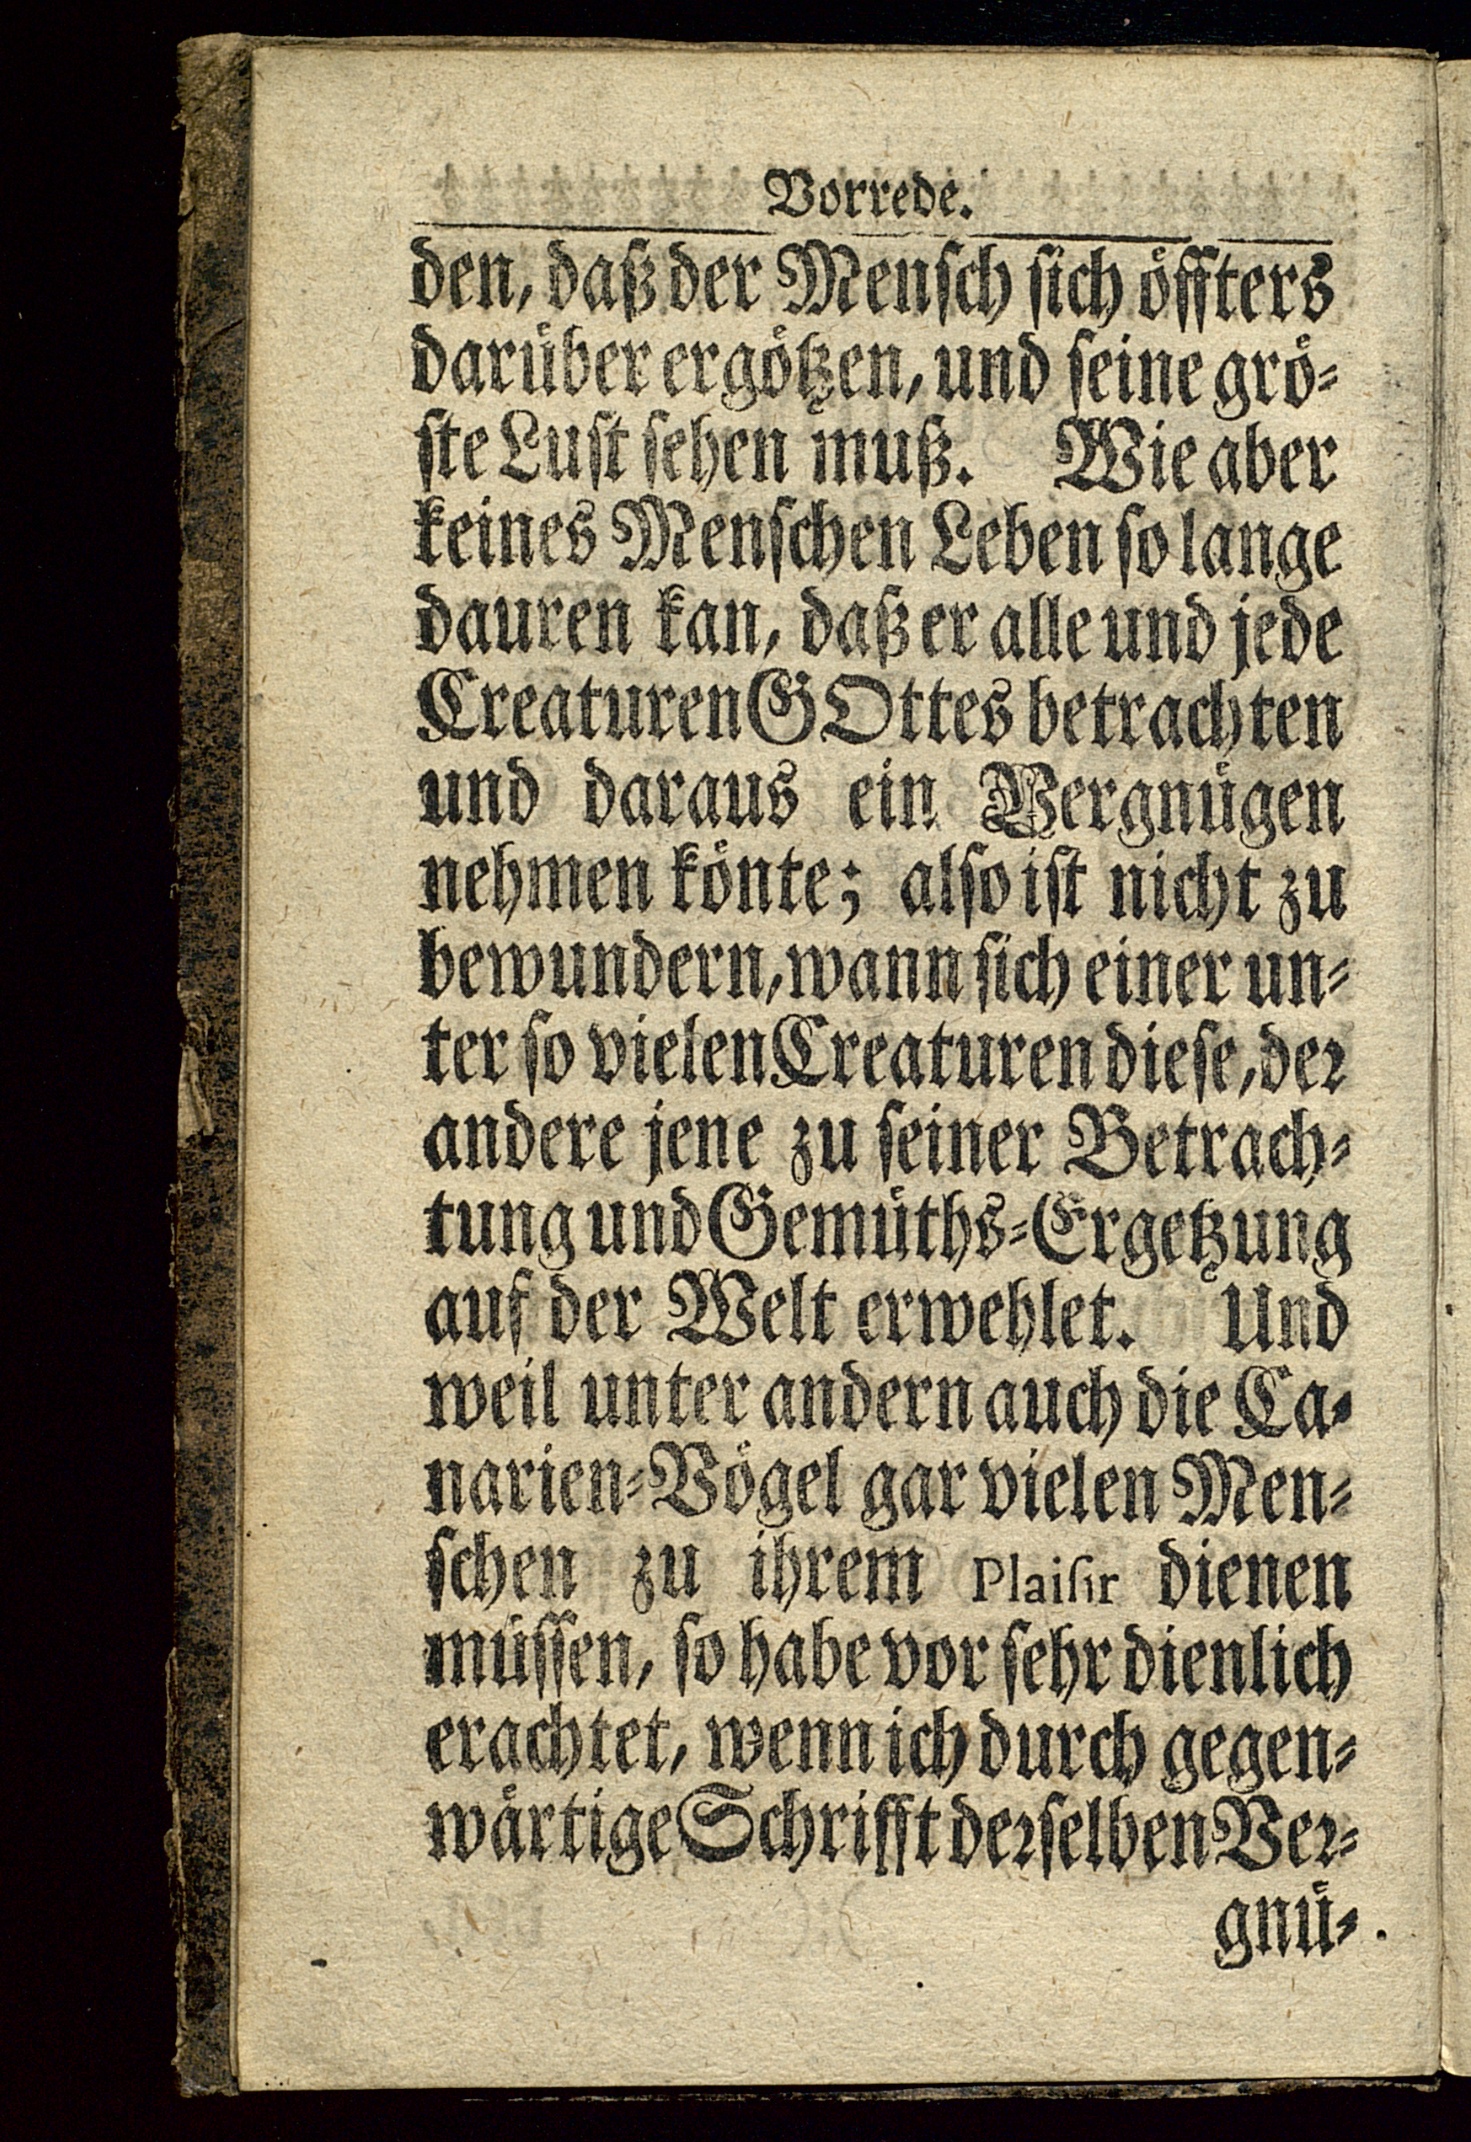 Vorrede.
den, daß der Mensch sich öffters
darüber ergötzen, und seine grö-
ste Lust sehen muß. Wie aber
keines Menschen Leben so lange
dauren kan, daß er alle und jede
Creaturen GOttes betrachten
und daraus ein Vergnügen
nehmen könte; also ist nicht zu
bewundern, wann sich einer un-
ter so vielen Creaturen diese, der
andere jene zu seiner Betrach-
tung und Gemüths-Ergetzung
auf der Welt erwehlet. Und
weil unter andern auch die Ca-
narien-Vögel gar vielen Men-
schen zu ihrem Plaisir dienen
müssen, so habe vor sehr dienlich
erachtet, wenn ich durch gegen-
wärtige Schrifft derselben Ver-
gnü-